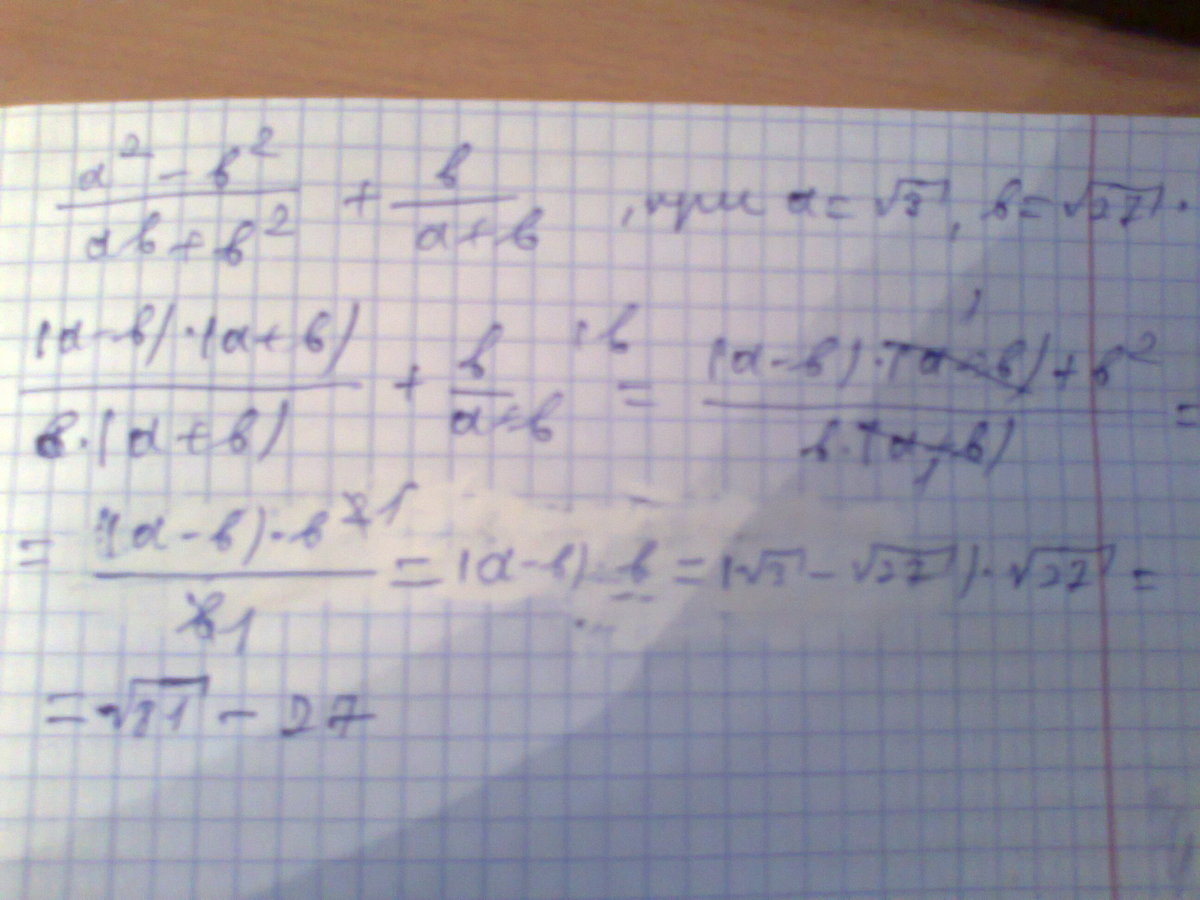 (a² - b²)/(ab + b²) + b/(a + b) , при a = √3, b = √27.
((a - b)·(a + b))/(b·(a + b)) + b/(a + b) ·b = ((a - b)·(a + b) + b²)/(b·(a + b)) =
= ((a - b)·b² 1)/(b 1) = (a - b)·b = (√3 - √27)·√27 =
= √81 - 27